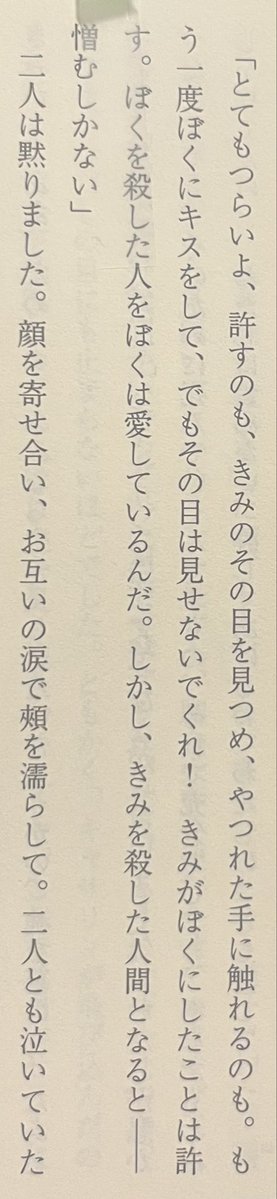 「とてもつらいよ、許すのも、きみのその目を見つめ、やつれた手に触れるのも。も
う一度ぼくにキスをして、でもその目は見せないでくれ！　きみがぼくにしたことは許
す。ぼくを殺した人をぼくは愛しているんだ。しかし、きみを殺した人間となると――
憎むしかない」
二人は黙りました。顔を寄せ合い、お互いの涙で頰を濡らして。二人とも泣いていた